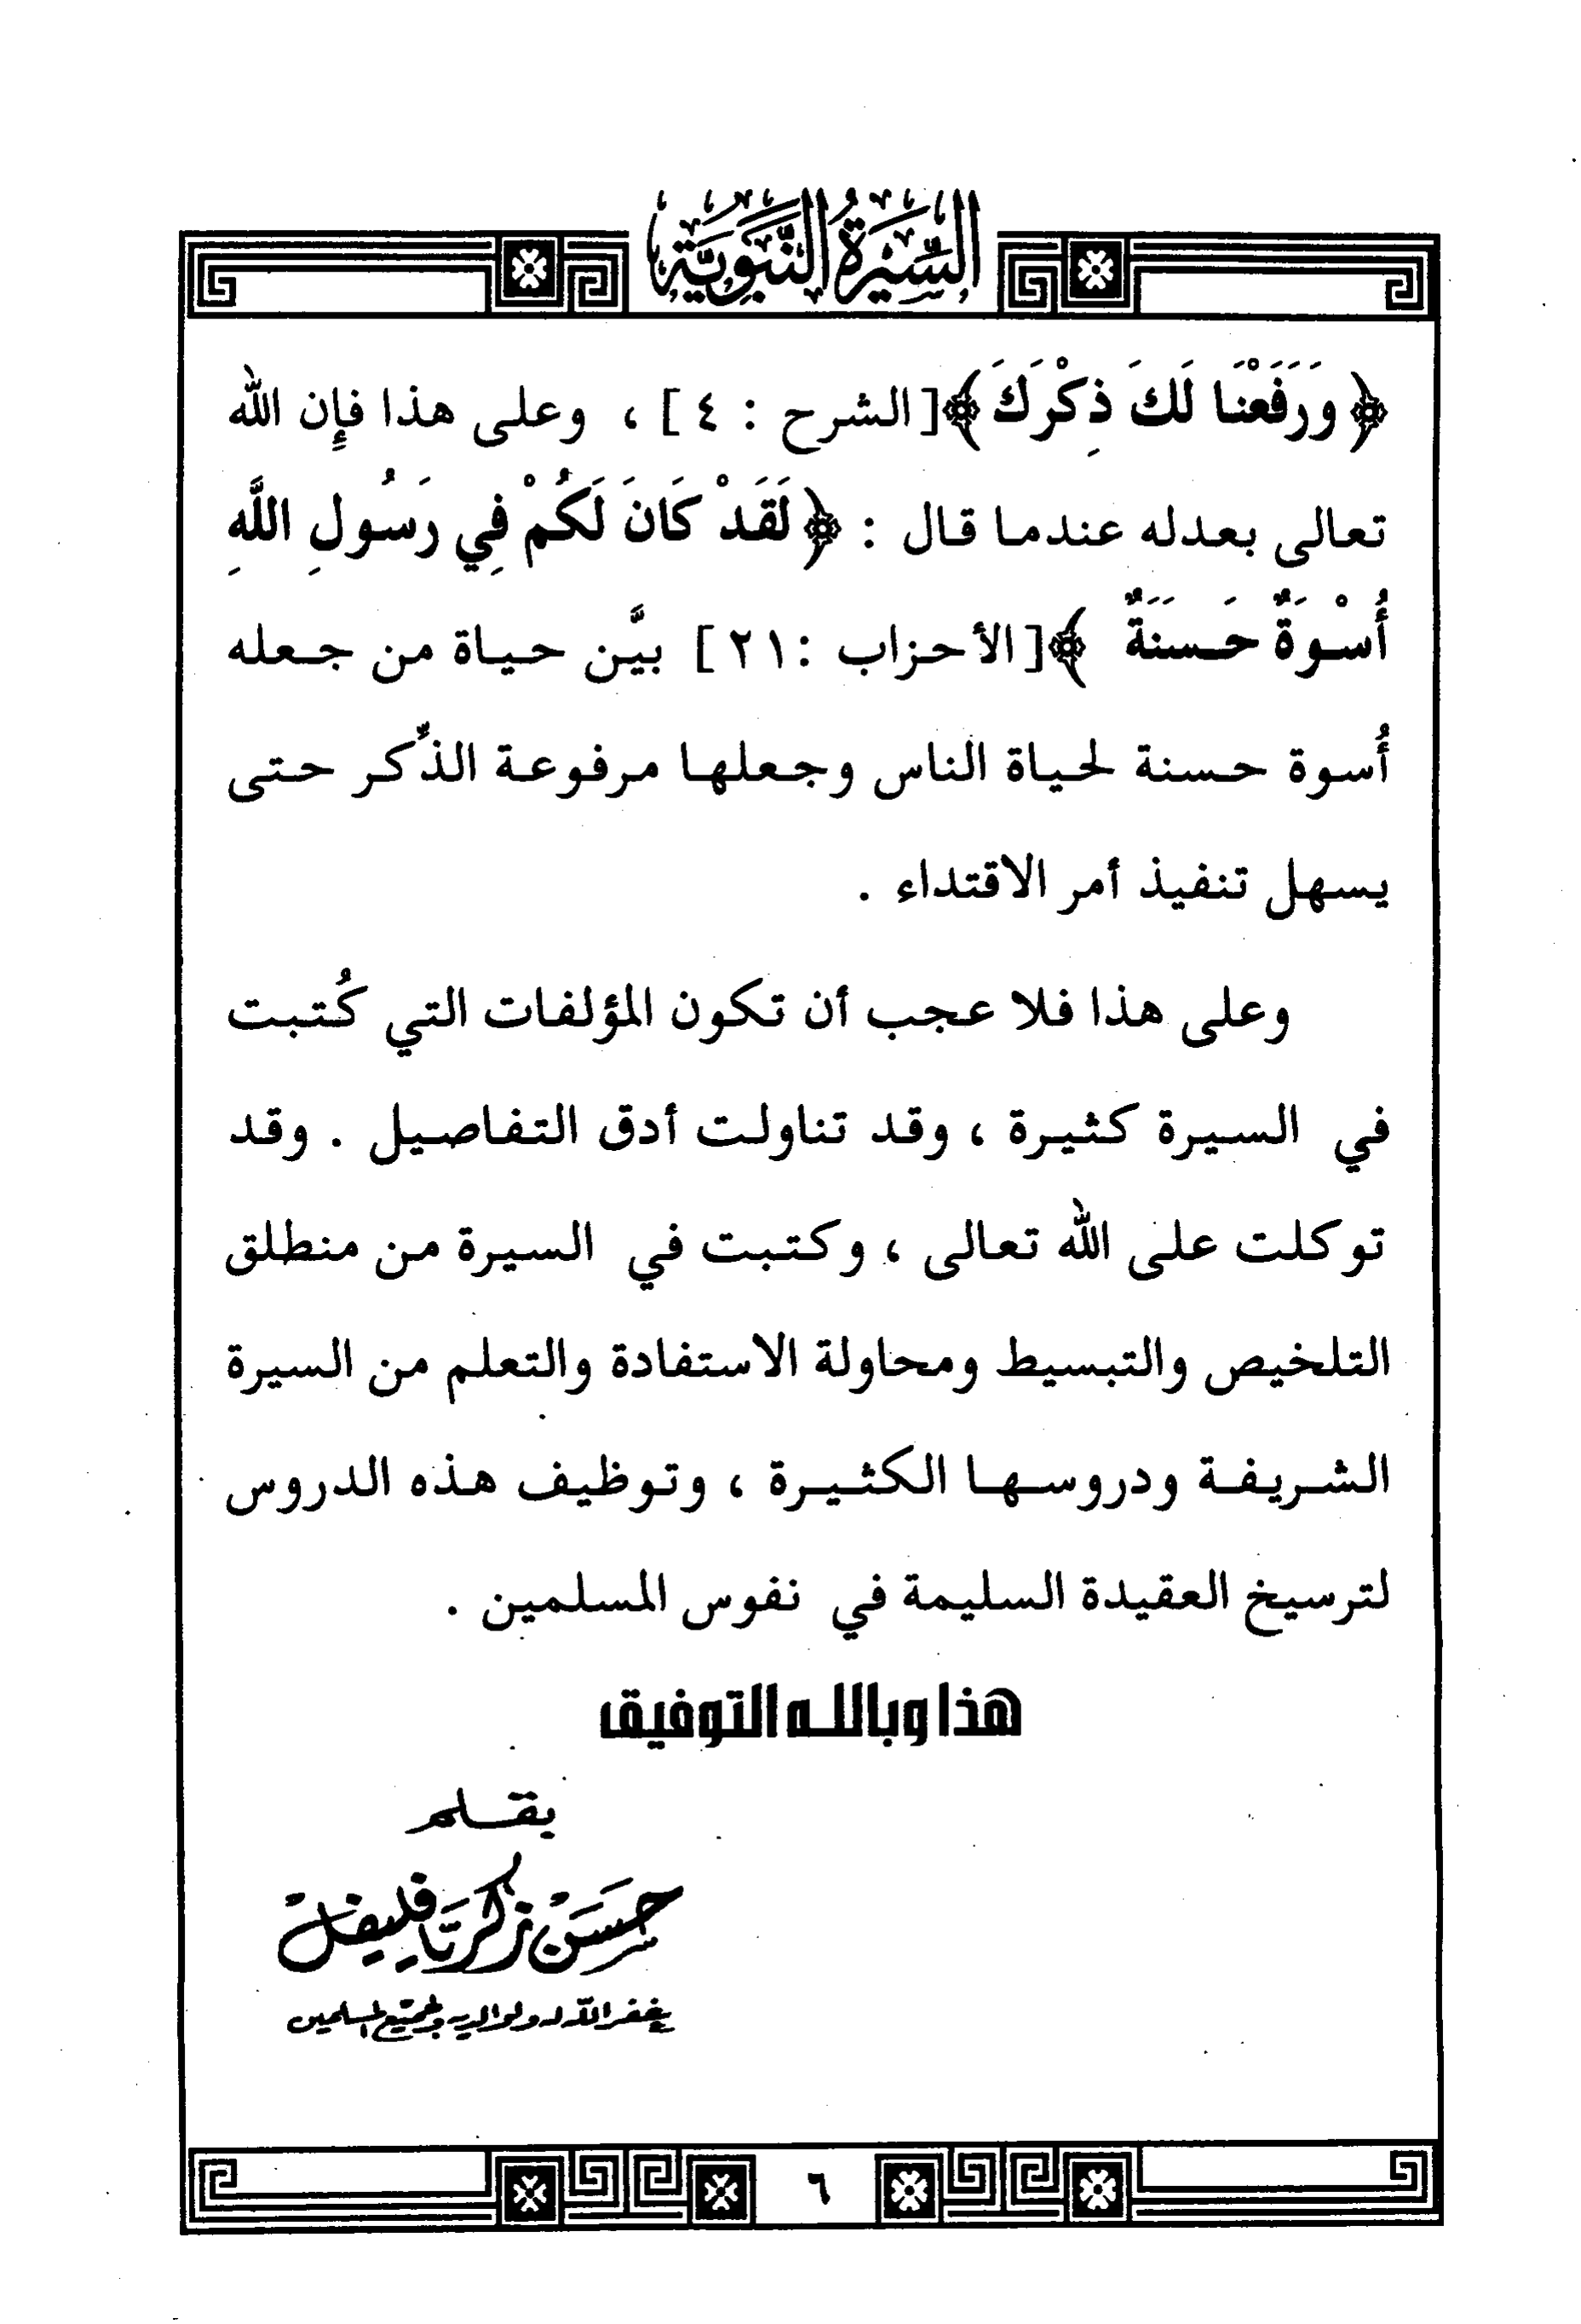 السِّيْرَةُ النَّبَوِيَّة
﴿ وَرَفَعْنَا لَكَ ذِكْرَكَ ﴾[الشرح : ٤] ، وعلى هذا فإن الله
تعالى بعدله عندما قال : ﴿ لَقَدْ كَانَ لَكُمْ فِي رَسُولِ اللَّهِ
أُسْوَةٌ حَسَنَةٌ ﴾[الأحزاب :٢١] بيَّن حياة من جعله
أُسوة حسنة لحياة الناس وجعلها مرفوعة الذِّكر حتى
يسهل تنفيذ أمر الاقتداء .
وعلى هذا فلا عجب أن تكون المؤلفات التي كُتبت
في السيرة كثيرة ، وقد تناولت أدق التفاصيل . وقد
توكلت على الله تعالى ، وكتبت في السيرة من منطلق
التلخيص والتبسيط ومحاولة الاستفادة والتعلم من السيرة
الشريفة ودروسها الكثيرة ، وتوظيف هذه الدروس
لترسيخ العقيدة السليمة في نفوس المسلمين .
هذا وبالله التوفيق
بقلم
حسن زكريا فليفل
يغفر الله له ولوالديه ولجميع المسلمين
٦